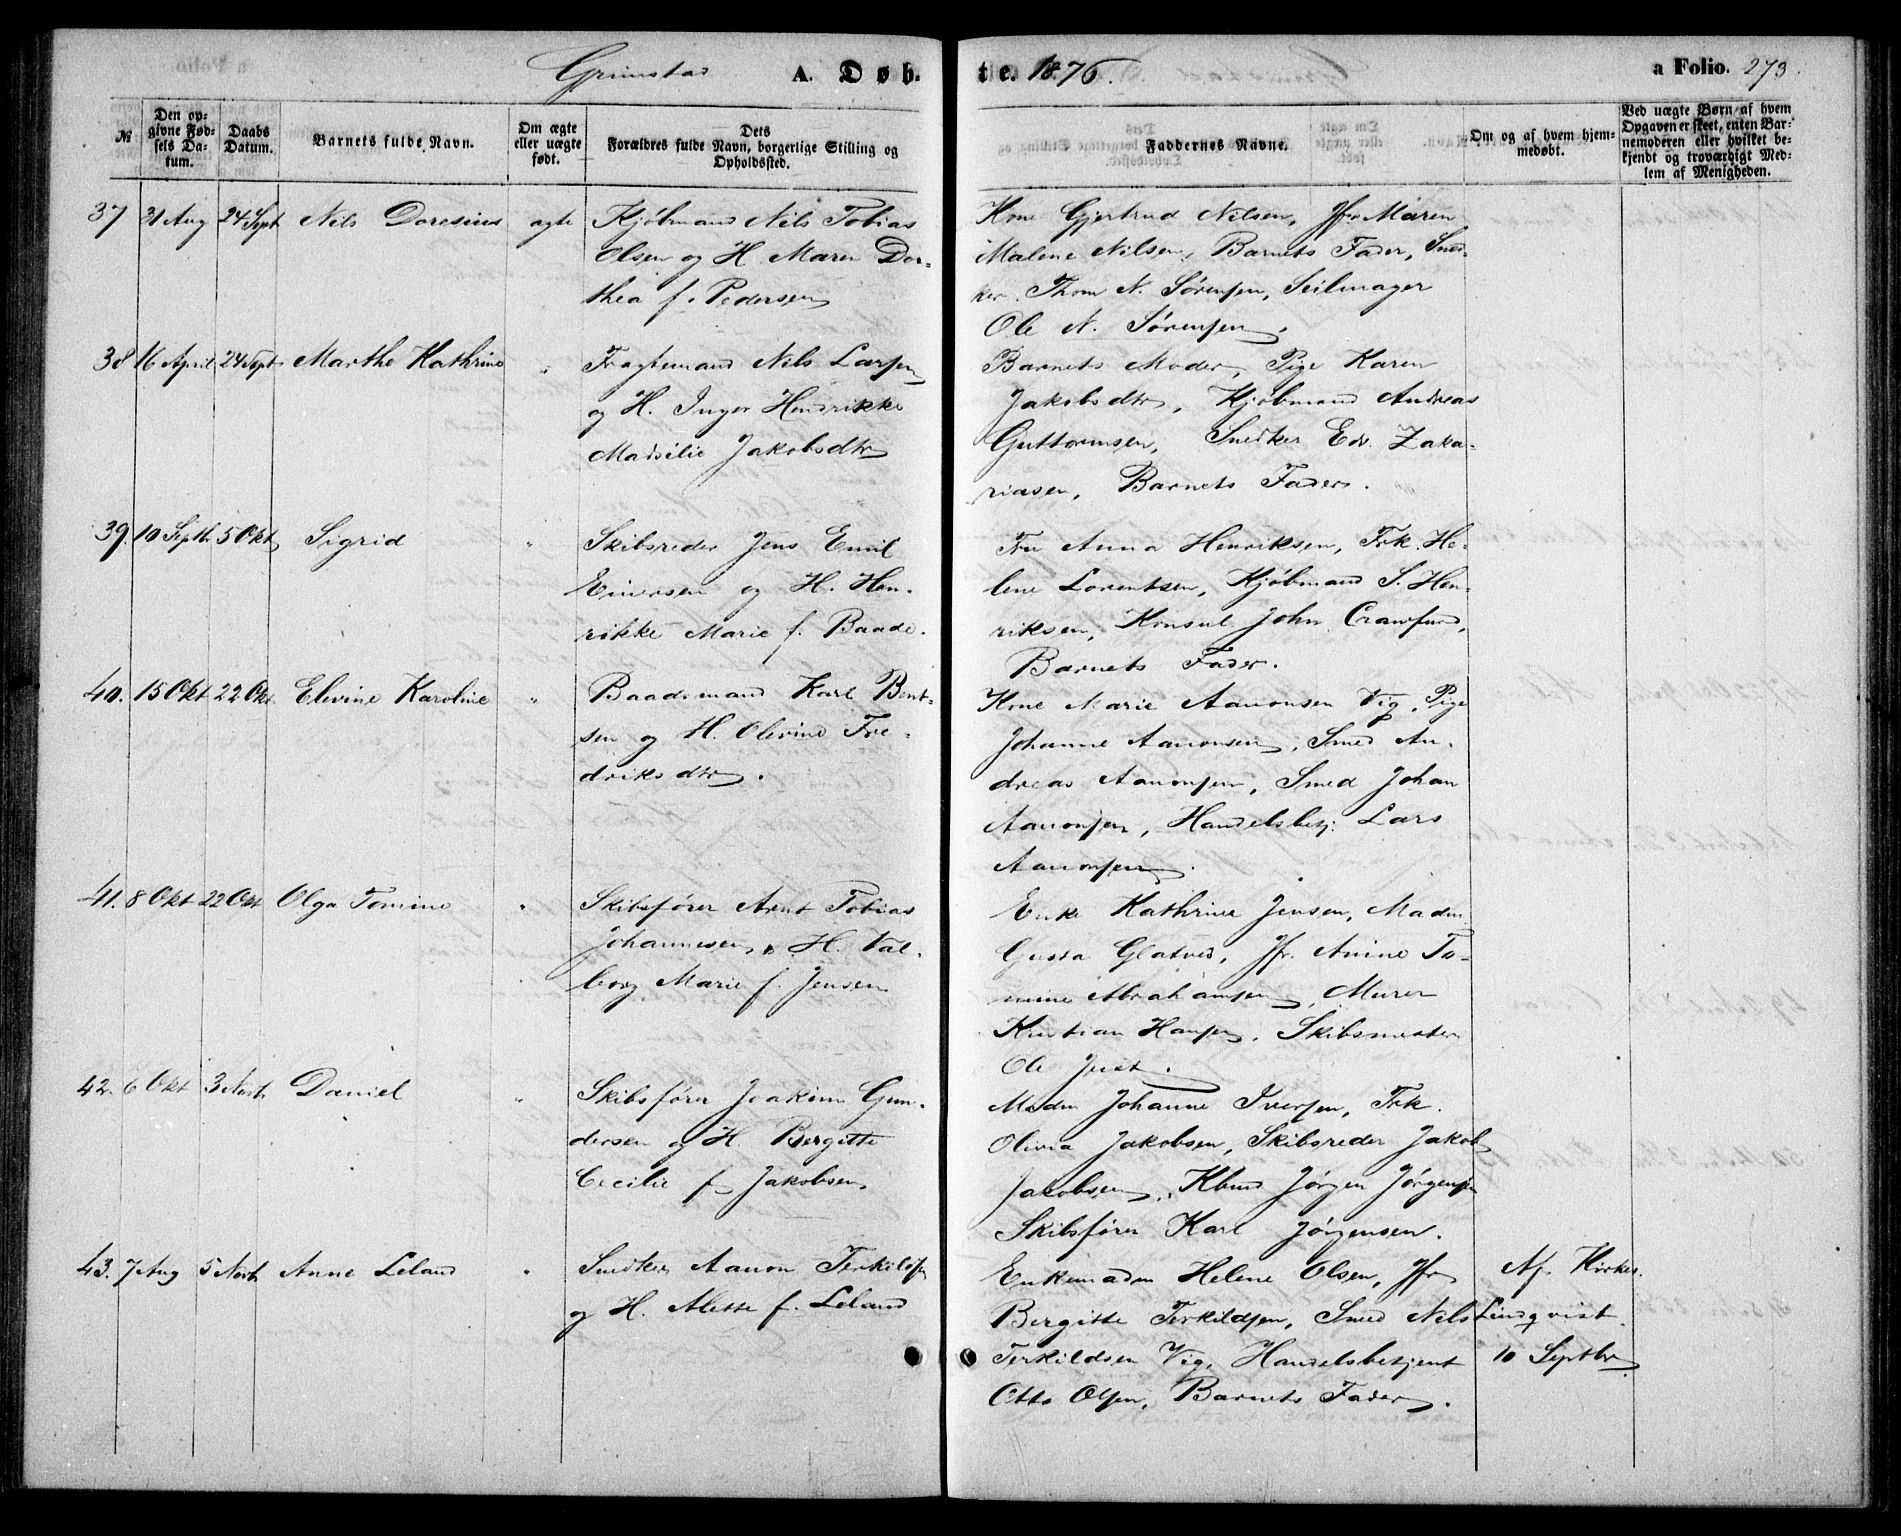 Grimstad A. Døb. te. 1876. a Folio. 273.
№
Den op-
givne Fød-
sels Da-
tum.
Daabs
Datum.
Barnets fulde Navn.
Om ægte
eller uægte
født.
Dets
Forældres fulde Navn, borgerlige Stilling og
Opholdssted.
Faddernes Navne.
Om og af hvem hjem-
medøbt.
Ved uægte Børn af hvem
Opgaven er skeet, enten Bar-
nemoderen eller hvilket be-
kjendt og troværdigt Med-
lem af Menigheden.
37 31 Aug 24 Sept Nils Doresius ægte Kjøbmand Nils Tobias
Olsen og H. Maren Dor-
thea f. Pedersen
Kone Gjertrud Nilsen, Jfr Maren
Malene Nilsen, Barnets Fader, Sned-
ker Thom N. Sørensen, Seilmager
Ole N. Sørensen.
38 16 April 24 Sept Marthe Kathrine " Fragtemand Nils Larsen
og H. Inger Henrikke
Madsilie Jakobsdtr
Barnets Moder, Pige Karen
Jakobsdtr, Kjøbmand Andreas
Guttormsen, Snedker Edv. Zaka-
riasen, Barnets Fader.
39. 10 Septb. 5 Okt Sigrid " Skibsreder Jens Emil
Eiversen og H. Hen-
rikke Marie f. Baade.
Fru Anna Henriksen, Frk. He-
lene Lorentsen, Kjøbmand S. Hen-
riksen, Konsul John Crawfurd,
Barnets Fader.
40. 15 Okt 22 Okt Elevine Karoline " Baadsmand Karl Bent-
sen og H. Olevine Fre-
driksdtr.
Kone Marie Aanonsen Vig, Pige
Johanne Aanonsen, Smed An-
dreas Aanonsen, Smed Johan
Aanonsen, Handelsbetj. Lars
Aanonsen.
41. 8 Okt 22 Okt Olga Tomine " Skibsfører Arnt Tobias
Johannesen, H. Val-
borg Marie f. Jensen
Enke Kathrine Jensen, Madm
Gusta Glatved, Jfr. Anine To-
mine Abrahamsen, Murer
Kristian Hansen, Skibsmester
Ole Just.
42. 6 Okt 3 Novb Daniel " Skibsfører Joakim Gun-
dersen og H. Bergitte
Cecilie f. Jakobsen
Madm Johanne Iversen, Frk.
Olivia Jakobsen, Skibsreder Jakob
Jakobsen, Kbmd Jørgen Jørgensen
Skibsfører Karl Jørgensen.
43. 7 Aug 5 Novb Anne Leland " Snedker Aanon Terkildsen
og H. Alette f. Leland
Enkemadm Helene Olsen, Jfr
Bergitte Terkildsen, Smed Nils
Terkildsen Vig, Handelsbetjent
Otto Olsen, Barnets Fader.
Af Kirkes.
Lindqvist.
10 Septbr